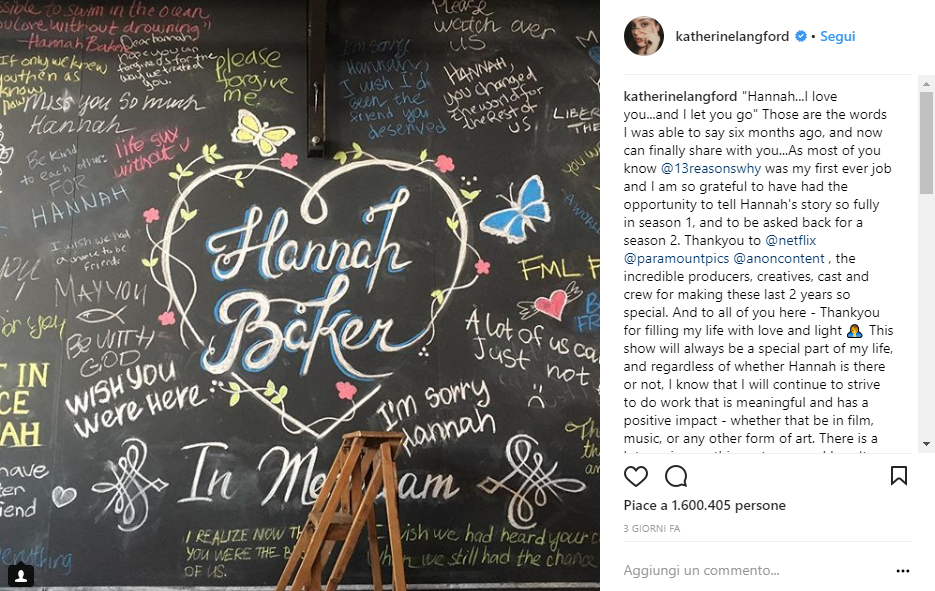 ssible to swim in the ocean
love without drowning"
-Hannah Baker
If only we knew
you then as
know
now
Dear hannah,
hope you can
forgive us for the
way we treated
you
please
forgive
me.
Miss you So much
Hannah
Be Kind
to each other
FOR
HANNAH
life sux
without U
I wish we had
a chance to be
friends
MAY YOU
BE WITH
GOD
WISH YOU
WERE HERE
Please
watch over
us
I'm sorry
Hannah,
I wish I'd
been the
friend you
deserved
HANNAH,
you changed
the world for
the rest of
US
LIBER
THE
Hannah
Baker
FML F
A lot of us ca
just not
I'm sorry
Hannah
T IN
CE
AH
have
iend
In Me am
I REALIZE NOW TH
YOU WERE THE B
OF US.
I wish we had heard your c
when we still had the chance
everything
katherinelangford • Segui
katherinelangford "Hannah...I love
you...and I let you go" Those are the words
I was able to say six months ago, and now
can finally share with you...As most of you
know @13reasonswhy was my first ever job
and I am so grateful to have had the
opportunity to tell Hannah's story so fully
in season 1, and to be asked back for a
season 2. Thankyou to @netflix
@paramountpics @anoncontent , the
incredible producers, creatives, cast and
crew for making these last 2 years so
special. And to all of you here - Thankyou
for filling my life with love and light 🤦‍♀️ This
show will always be a special part of my life,
and regardless of whether Hannah is there
or not, I know that I will continue to strive
to do work that is meaningful and has a
positive impact - whether that be in film,
music, or any other form of art. There is a
Piace a 1.600.405 persone
3 GIORNI FA
Aggiungi un commento...